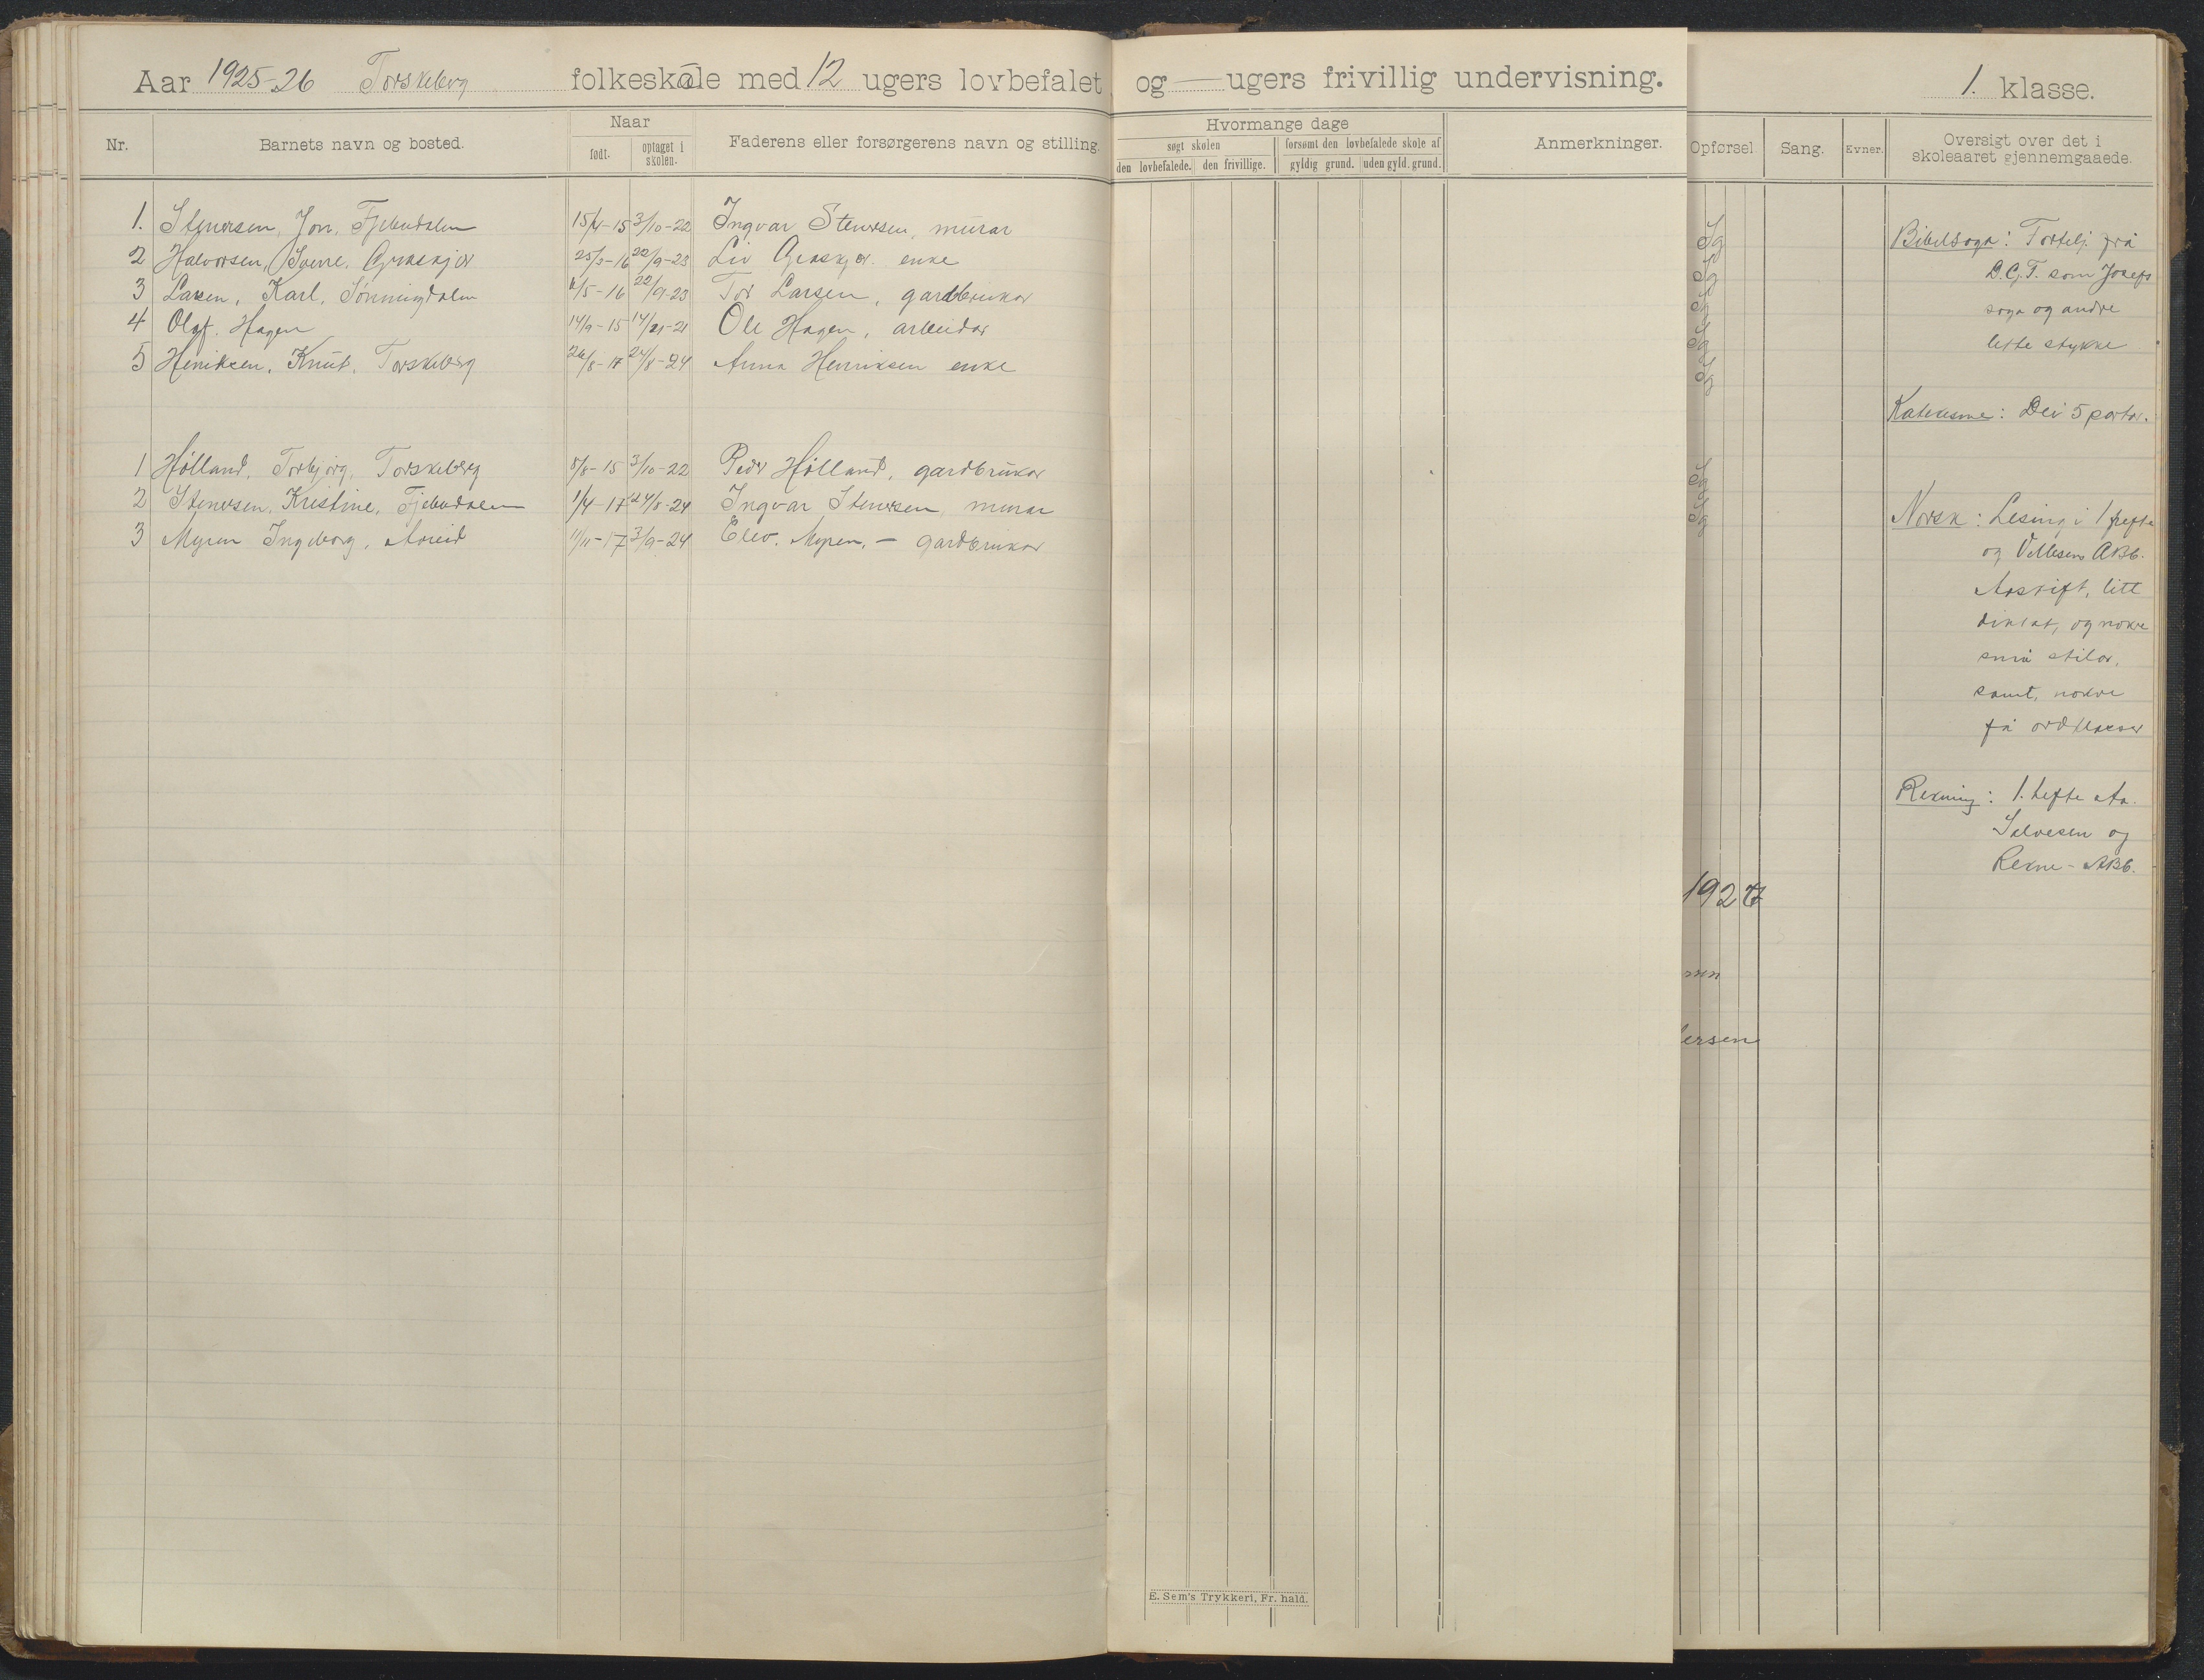 Aar 1925-26 Torskeberg folkeskole med 12 ugers lovbefalet og — ugers frivillig undervisning.
1. klasse.
Nr. Barnets navn og bosted. Naar født. optaget i skolen. Faderens eller forsørgerens navn og stilling.
Hvormange dage
søgt skolen forsømt den lovbefalede skole af
den lovbefalede. den frivillige. gyldig grund. uden gyld. grund.
Anmerkninger.
Opførsel. Sang. Evner. Oversigt over det i skoleaaret gjennemgaaede.
1. Stenersen, Jon, Fjebudalen 15/4-15 3/10-22 Ingvar Stenersen, murar Sg
2 Halvorsen, Sverre, Graskjær 25/3-16 22/9-23 Liv Graskjær enke Sg
3 Larsen, Karl, Sønningdalen 6/5-16 22/9-23 Tor Larsen, gardbrukar Sg
4 Olaf Hagen 14/9-15 Ole Hagen, arbeidar Sg
5 Henriksen, Knut, Torskeberg 26/8-17 24/8-24 Anna Henriksen enke Sg
1 Hølland, Torbjørg, Torskeberg 8/8-15 3/10-22 Peder Hølland, gardbrukar Sg
2 Stenersen, Kristine, Fjebudalen 1/4-17 24/8-24 Ingvar Stenersen, murar Sg
3 Myren Ingeborg, 11/11-17 3/9-24 Elev. Myren, — gardbrukar
Bibelsoga: Forteлj. frå
D.G.T. som Josefs
soga og andre
lette stykke
Katekisme: Dei 5 partar.
Norsk: Lesing i 1 hefte
og Vellesens ABC.
Avskrift, litt
diktat, og nokre
små stilar,
samt, nokre
få ordklasser
Rekning: 1. hefte
Salvesen og
Rekne-ABC.
1927
ersen
E. Sem's Trykkeri, Fr. hald.